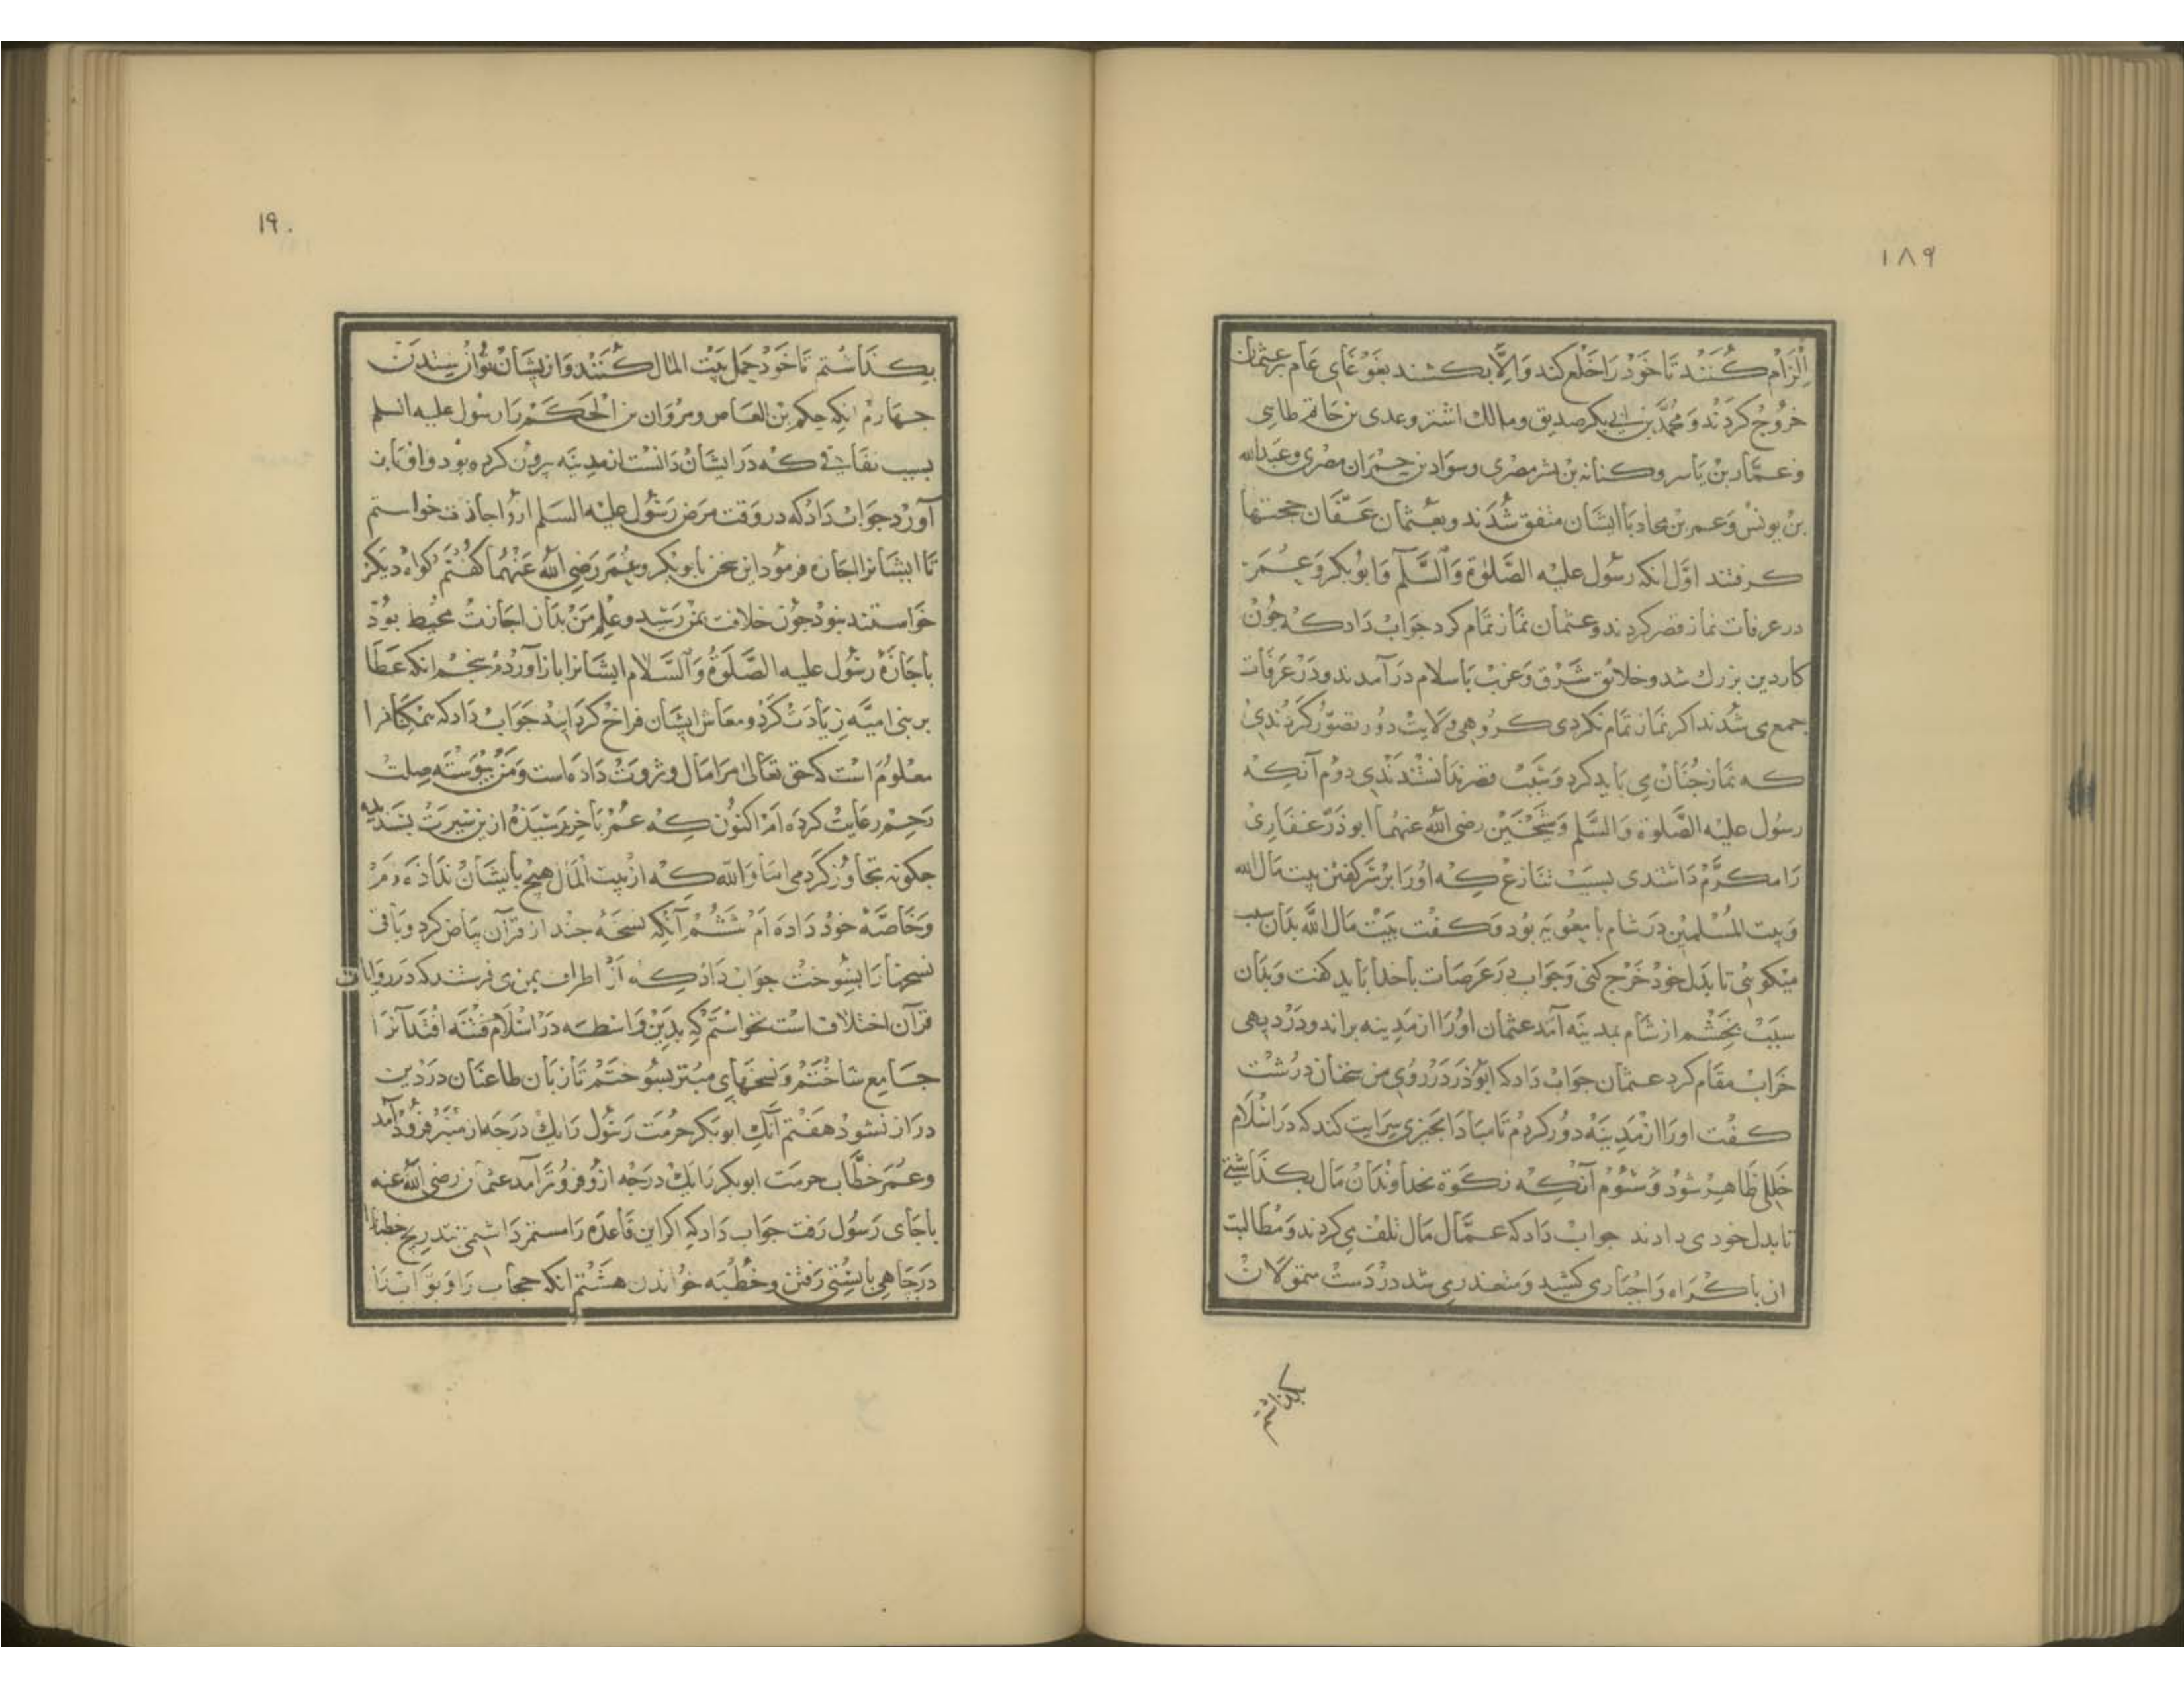 ١٨٩
اِلْزَامْ كُنَنْد تَا خَوْدْ رَا خَلْع كند وَ اِلَّا بكشند بغَوْغَايِ عَام بر عثمان
خرُوجْ كردَنْد وَ مُحَمَّد بْن ابى بكر صديق و مالك اشتر و عدى بن حَاتم طايى
و عمَّار بنْ يَاسر و كنانه بْن بشر مصْرى و سوَاد بن حمْرَان مصْرى و عَبدالله
بن يونسْ وَ عمر بْن معاد باايشَان متفق شُدَند و بعُثمان عَفَّان حجتها
كرفتند اوَّل انكه رسُول عليْه الصَّلوٰة وَالسَّلٓم وَ ابُوبكر وَ عُمَرَ
در عرفات نماز قصر كردند و عثمان نمَاز تمَام كرد جوَابْ دَاد كه جُونْ
كار دين بزرك شد و خلائق شَرْق وَ غربْ بَاسلام درَآمدند و دَرْ عَرَفات
جمع مى شُدند اكر نمَاز تمَام نكردى كروُهى ولايتْ دوُر تصَوّر كَردندى
كه نمَاز جُنَانْ مى بايد كرد وَ سَبَبْ قصر ندانستندى دوم آنكه
رسُول عليْه الصَّلوة وَ السَّلم وَ شَيْخَيْن رضى اللّٰه عنهُما ابوذَرّ غفَارى
رَا مكرَّمْ دَاشتندى بسبَبْ تنَازعْ كه اوُرَا بَر كفتن بيت مَال الله
وَ بيت المُسْلميْن درَ شام با معُويَه بُود وَ كفت بَيْت مَال اللّٰه بدَان سبب
ميْكوئى تا بدَل خودْ خَرْج كنى وَ جوَاب درَ عَرَصَات با خدا بايد كفت وَ بدَان
سبَبْ بخشْم از شَام بمدينَه آمَد عثمان اوُرَا از مَدينه براند و درْ ديهى
خرَابْ مقَام كرد عثمان جوَابْ دَاد كه ابوُذر دَرْ روُى من سخنَان درُشتْ
كفْت اورَا از مَديَنَه دوُر كردم تا مبَادَا بجيزى سرَايت كند كه درَ اسْلَام
خللى ظَاهرْ شود وَ سوُمْ آنكه زكَوة بخداوندَانْ مَال بكذاشتى
تا بدل خود مى دادند جوابْ دَاد كه عمَّال مَال تلفْ مى كردند وَ مُطالبت
ان باكْرَاه وَ اجْبَار مى كشيد وَ متعذر مى شد درْ دَستْ متمولانْ
بكذاشتم
١٩٠
بكذَاشْتم تَا خَودْ حمل بَيْت المَال كُنند وَ از ايشَانْ توُانْ ستدن
جهَارمْ انكه حكم بن العَاص و مرْوَان بن الْحَكم رَا رسُول عليه السلم
بسبب نفَاقى كه درَ ايشَانْ دَانسْت از مدينَه بيرُون كرده بود و او بَاز
آورْد جوَابْ دَاد كه در وَقت مرَض رَسُول عليْه السَلم ازو اجازت خواستم
تَا ايشَانرا اجازه فرمُود اين سخن با بوبْكر وَ عُمَر رَضى اللّٰه عَنْهُما كفتَم كواه ديكَر
خوَاستند نبود جُون خلافت بمَنْ رَسيد و علم مَنْ بدَان اجَازتْ محيط بُودْ
باجَازة رسُول عليه الصَّلَوٰةُ وَ السَّلام ايشَانرا باز آوردم بنجم انكه عَطَا
بر بنى اميَّه زيَادَتْ كَرد و معَاش ايشان فراخْ كردَانيد جوَابْ داد كه همكنانرا
معْلومُ است كه حق تعَالى مرَا مَال و ثروتْ دَادَه است وَ مَنْ بيوسْته صلتْ
رَحم رعَايت كردَه امْ اكنُون كه عُمْر بآخر رَسيدَه از ين سيرَتْ بسَنديده
جكونه تجاوُز كردمى امَا وَ اللّٰه كه از بيت المَال هيْج بايشَانْ ندَادَه ام
وَ خَاصَّه خودْ دَادَه ام شَشُمْ آنكه نسْخَه جند از قرآن بيَاض كرد و بَاقى
نسختها را بسُوخت جوَابْ دَادْ كه اَزْ اطراف بمن مى فرستند كه در روَايات
قرآن اختلافْ است نخوَاستم كه بدين وَاسْطه درَ اسْلَام فتْنه افتد آنرَا
جَامع سَاختَمْ وَ نسخهَاى مبتر بسُوختمْ تا زبَان طاعنَان درَ دْين
درَاز نشود هفتم آنكه ابوبكر حرمَت رَسُول رَا يكْ درَجَه از منبر فروُد آمد
وَ عُمَر خطَّاب حرمَت ابوبكر رَا يكْ درَجَه ازو فروُتر آمد عثمَان رضى اللّٰه عنه
باجَاى رَسُول رَفت جوَاب دَاد كه اكر اين قَاعدَه رَا مستمرّ دَاشتمى بتدريج خطبا را
درَ جَاهى بايستى رَفتن و خُطْبَه خوَاندن هشْتم انكه حجَّاب رَا وَ بوَّابْ رَا